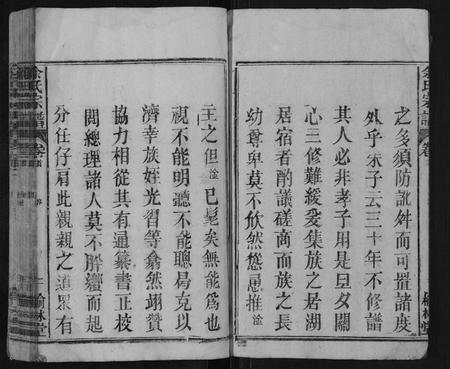 之多須防訛舛而可置諸度
外乎朱子云三十年不修譜
其人必非孝子用是旦夕關
心三修難緩爰集族之居湖
居宿者酌議磋商而族之長
幼尊卑莫不欣然慫恿推淦
主之但淦已髦矣無能爲也
視不能明聽不能聰曷克以
濟幸族姪光習等翕然翊贊
協力相從其有通纂書正校
閱總理諸人莫不踴躍而起
分任仔肩此親親之道果有
余氏宗譜
余氏宗譜
榆林堂